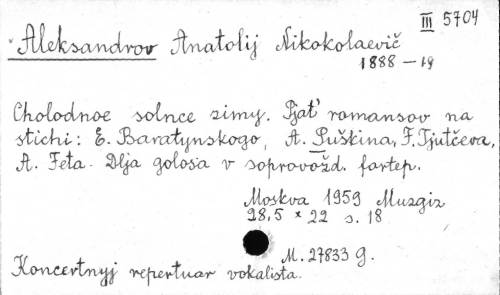 III 5704
Aleksandrov Anatolij Nikokolaevič
1888 – 19
Cholodnoe solnce zimy. Pjat' romansov na
stichi: E. Baratynskogo, A. Puškina, F. Tjutčeva,
A. Feta. Dlja golosa v soprovožd. fortep.
Moskva 1959 Muzgiz
28,5 × 22 s. 18
M. 27833 g.
Koncertnyj repertuar vokalista.